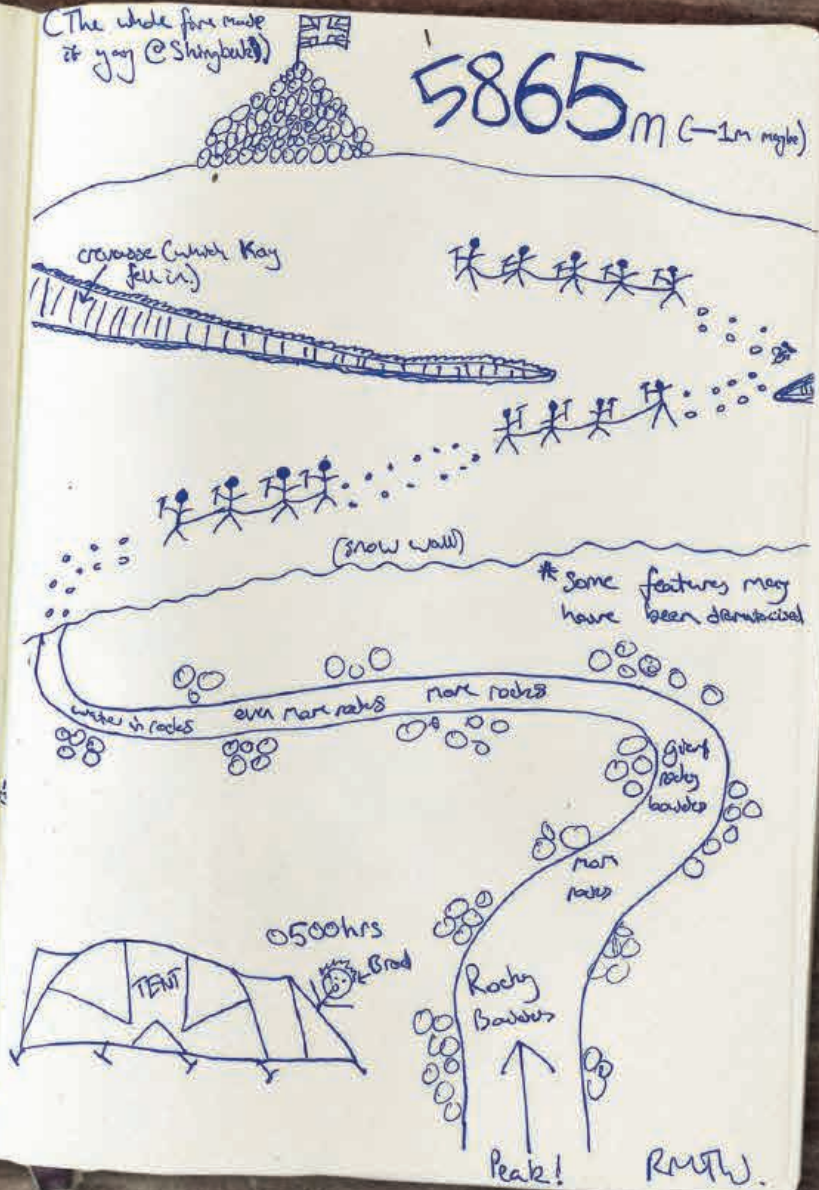 (The whole fire made
it yay @Shingbuk))
5865m (-1m maybe)
crevasse (which Kay
fell in.)
(snow wall)
* Some features may
have been dramatacised
more rocks
even more rocks
water in rocks
giant
rocky
boulders
more
rocks
0500hrs
Brad
TENT
Rocky
Boulders
Peak!
RMTW.